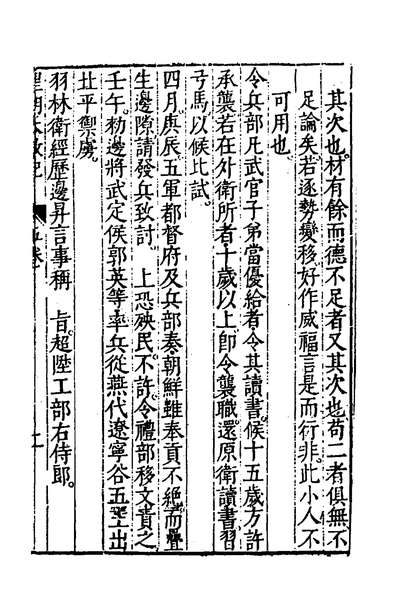 其次也材有餘而德不足者又其次也苟二者俱無不
足論矣若逐勢變移好作威福言是而行非此小人不
可用也
令兵部凡武官子弟當優給者令其讀書候十五歲方許
承襲若在外衛所者十歲以上即令襲職還原衛讀書習
弓馬以候比試
四月庚辰五軍都督府及兵部奏朝鮮雖奉貢不絕而疊
生邊隙請發兵致討 上恐殃民不許令禮部移文責之
壬午勑邊將武定侯郭英等率兵從燕代遼寧谷五王出
北平禦虜
羽林衛經歷邊昇言事稱 旨超陞工部右侍郎
皇朝大政記 五卷